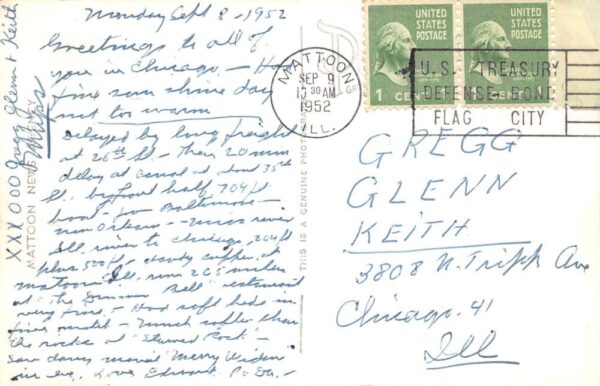 Monday Sept 8 - 1952
Greetings to all of
you in Chicago - Had
fine sun shine day
not too warm
Delayed by long freight
at 26th St. - Then 20 min
delay at Canal at 35th
St. by 704 ft
boat - for Baltimore -
New Orleans - river
Ill. river to Chicago, 204 ft
plus 500 ft, coffee at
Mattoon Ill. run 205 miles
at "The Dinner Bell" restaurant
very fine - Had soft beds in
fine motel - Much softer than
the rocks at "Starved Rock" -
Saw movie "Merry Widow"
in eve. Love Edward
XXX OOO Gregg Glenn + Keith
MATTOON NEWS
THIS IS A GENUINE PHOTO
MATTOON
SEP 9
10 30 AM
1952
ILL.
U.S. TREASURY
DEFENSE BOND
FLAG CITY
UNITED STATES POSTAGE
1 CENT
UNITED STATES POSTAGE
GREGG
GLENN
KEITH
3808 N. Tripp Ave
Chicago. 41
Ill